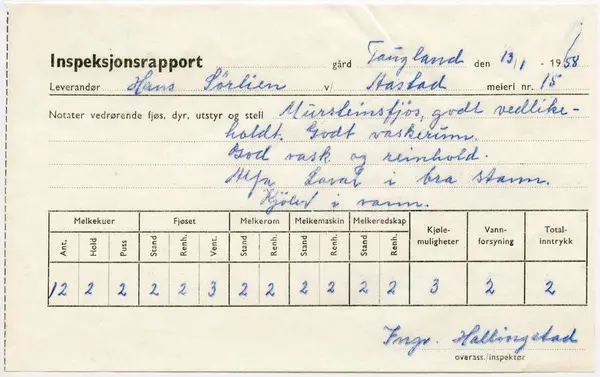 Inspeksjonsrapport gård Taugland den 13/1 - 1958
Leverandør Hans Sörlien v/ Hastad meieri nr. 15
Notater vedrørende fjøs, dyr, utstyr og stell Mursteinsfjös, godt vedlike-
holdt. Godt vaskerum.
God vask og reinhold.
Alfa Laval i bra stann.
Kjöler i vann.
Melkekuer Fjøset Melkerom Melkemaskin Melkeredskap Kjøle-muligheter Vann-forsyning Total-inntrykk
Ant. Hold Puss Stand Renh. Vent. Stand Renh. Stand Renh. Stand Renh.
12 2 2 2 2 3 2 2 2 2 2 2 3 2 2
Ingv. Hallingstad
overass./inspektør